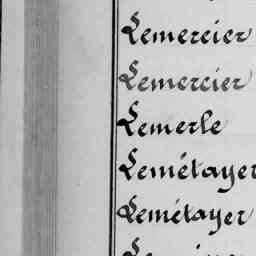 Lemercier
Lemercier
Lemerle
Lemétayer
Lemétayer